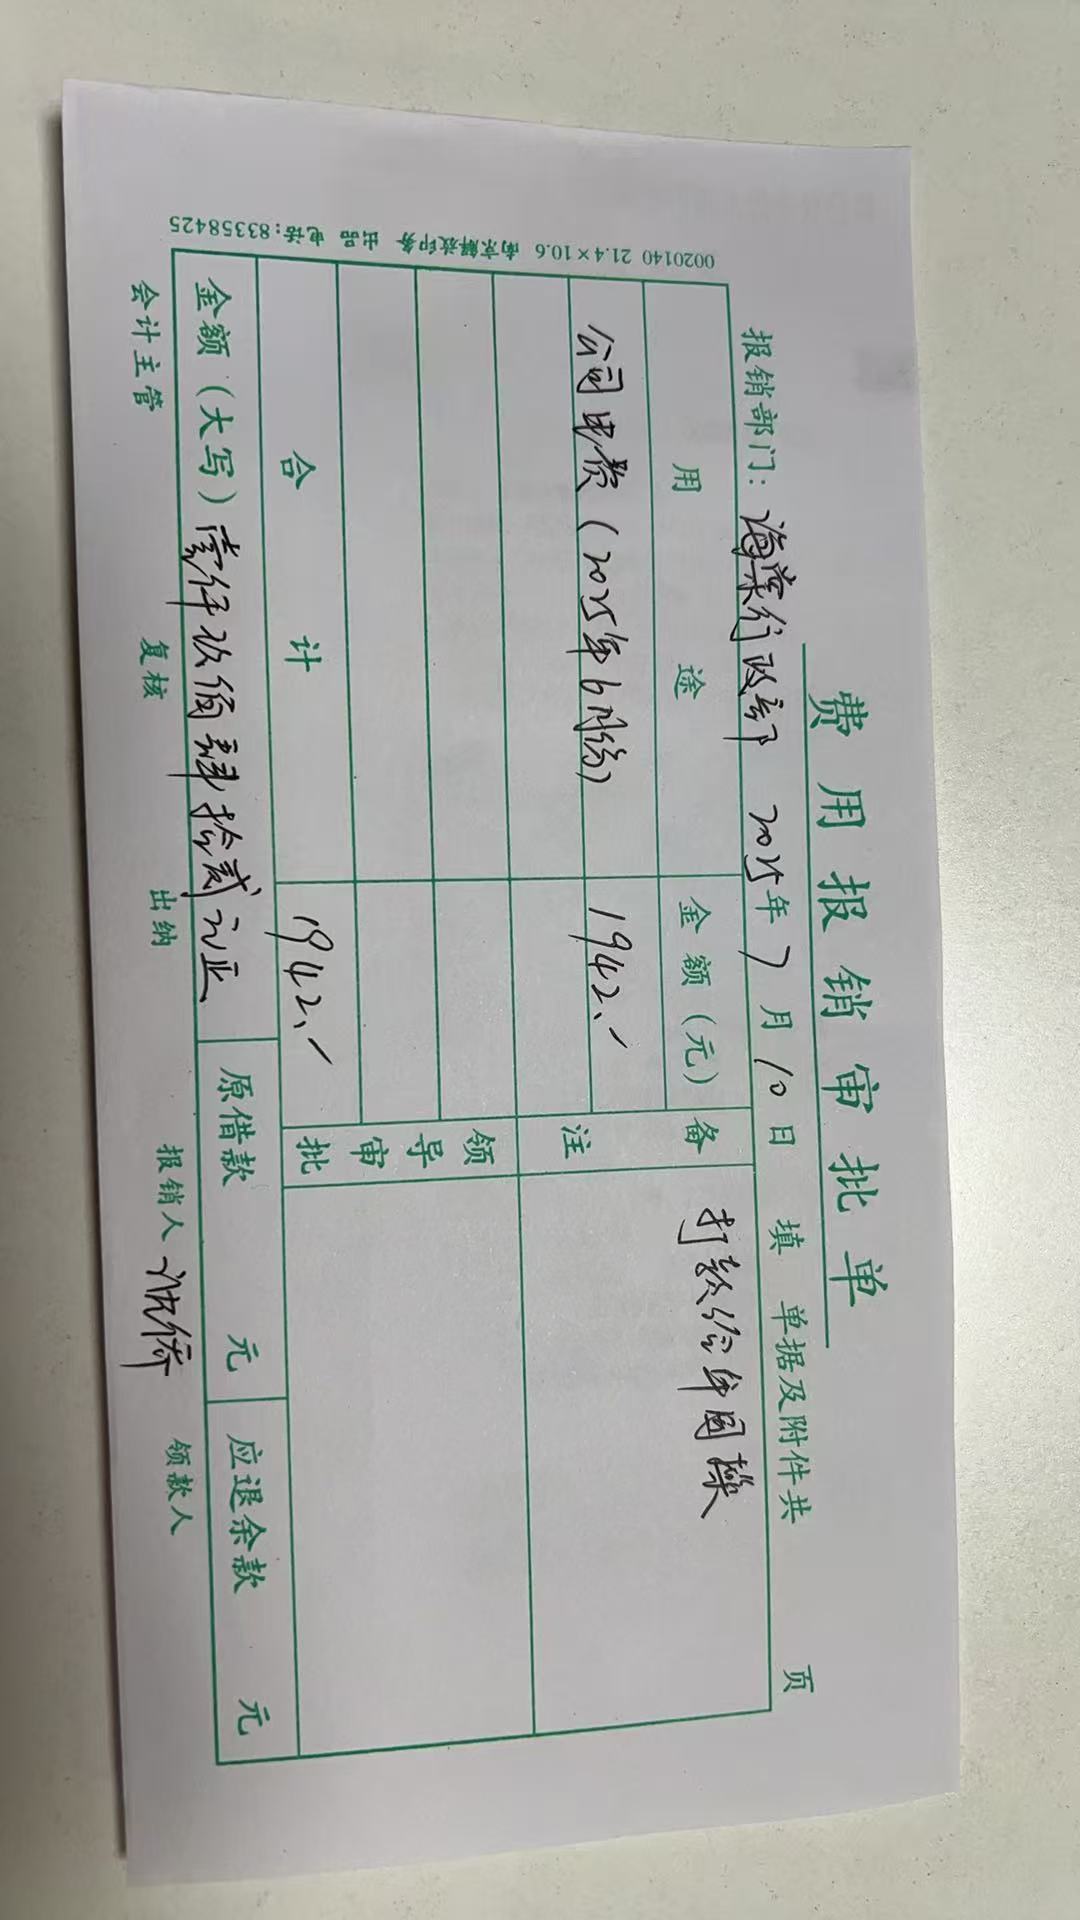 费用报销审批单
报销部门：海棠行政部 2025年7月10日 填 单据及附件共 页
用途 金额（元） 备注 打款给年国樑
公司电费（2025年6月份） 1942.
领导审批
合计 1942.
金额（大写）壹仟玖佰肆拾贰元正 原借款 元 应退余款 元
会计主管 复核 出纳 报销人 领款人
0020140 21.4×10.6 南京解放印务 出品 电话：83358425